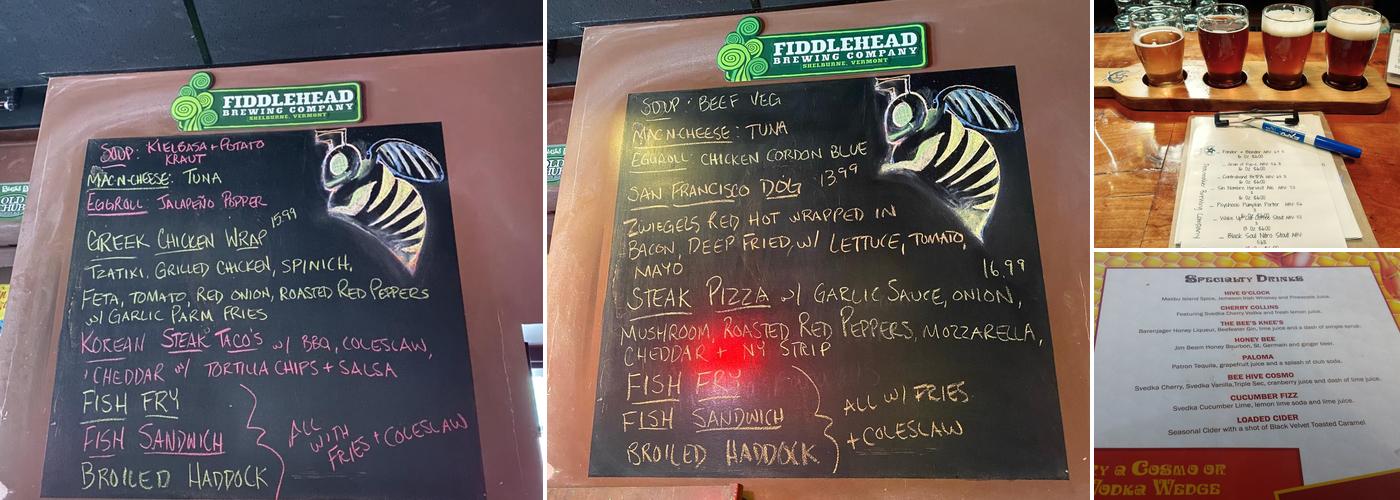 FIDDLEHEAD
BREWING COMPANY
SHELBURNE, VERMONT
SOUP: KIELBASA + POTATO
KRAUT
MAC-N-CHEESE: TUNA
EGGROLL: JALAPEÑO POPPER
GREEK CHICKEN WRAP 15.99
TZATIKI, GRILLED CHICKEN, SPINICH,
FETA, TOMATO, RED ONION, ROASTED RED PEPPERS
W/ GARLIC PARM FRIES
KOREAN STEAK TACO'S W/ BBQ, COLESLAW,
CHEDDAR W/ TORTILLA CHIPS + SALSA
FISH FRY
FISH SANDWICH
BROILED HADDOCK
ALL
WITH
FRIES + COLESLAW
FIDDLEHEAD
BREWING COMPANY
SHELBURNE, VERMONT
SOUP: BEEF VEG
MAC-N-CHEESE: TUNA
EGGROLL: CHICKEN CORDON BLUE
SAN FRANCISCO DOG 13.99
ZWIEGELS RED HOT WRAPPED IN
BACON, DEEP FRIED, W/ LETTUCE, TOMATO,
MAYO
16.99
STEAK PIZZA W/ GARLIC SAUCE, ONION,
MUSHROOM, ROASTED RED PEPPERS, MOZZARELLA,
CHEDDAR + NY STRIP
FISH FRY
FISH SANDWICH
BROILED HADDOCK
ALL W/ FRIES
+ COLESLAW
Psychotic Pumpkin Porter
Black Soul Nitro Stout
SPECIALTY DRINKS
HIVE O'CLOCK
Malibu Island Spice, Jameson Irish Whiskey and Pineapple juice.
CHERRY COLLINS
Featuring Svedka Cherry Vodka and fresh lemon juice.
THE BEE'S KNEE'S
Barenjager Honey Liqueur, Beefeater Gin, lime juice and a dash of simple syrup.
HONEY BEE
Jim Beam Honey Bourbon, St. Germain and ginger beer.
PALOMA
Patron Tequila, grapefruit juice and a splash of club soda.
BEE HIVE COSMO
Svedka Cherry, Svedka Vanilla, Triple Sec, cranberry juice and dash of lime juice.
CUCUMBER FIZZ
Svedka Cucumber Lime, lemon lime soda and lime juice.
LOADED CIDER
Seasonal Cider with a shot of Black Velvet Toasted Caramel
A COSMO OR
VODKA WEDGE